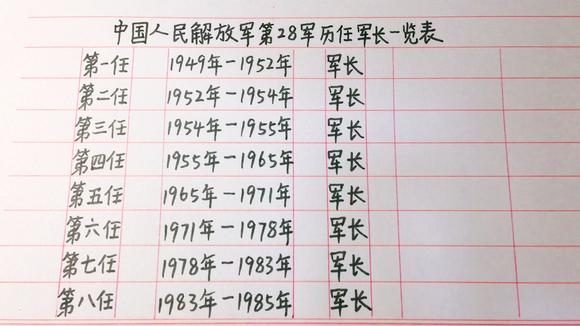 中国人民解放军第28军历任军长一览表
第一任 1949年-1952年 军长
第二任 1952年-1954年 军长
第三任 1954年-1955年 军长
第四任 1955年-1965年 军长
第五任 1965年-1971年 军长
第六任 1971年-1978年 军长
第七任 1978年-1983年 军长
第八任 1983年-1985年 军长